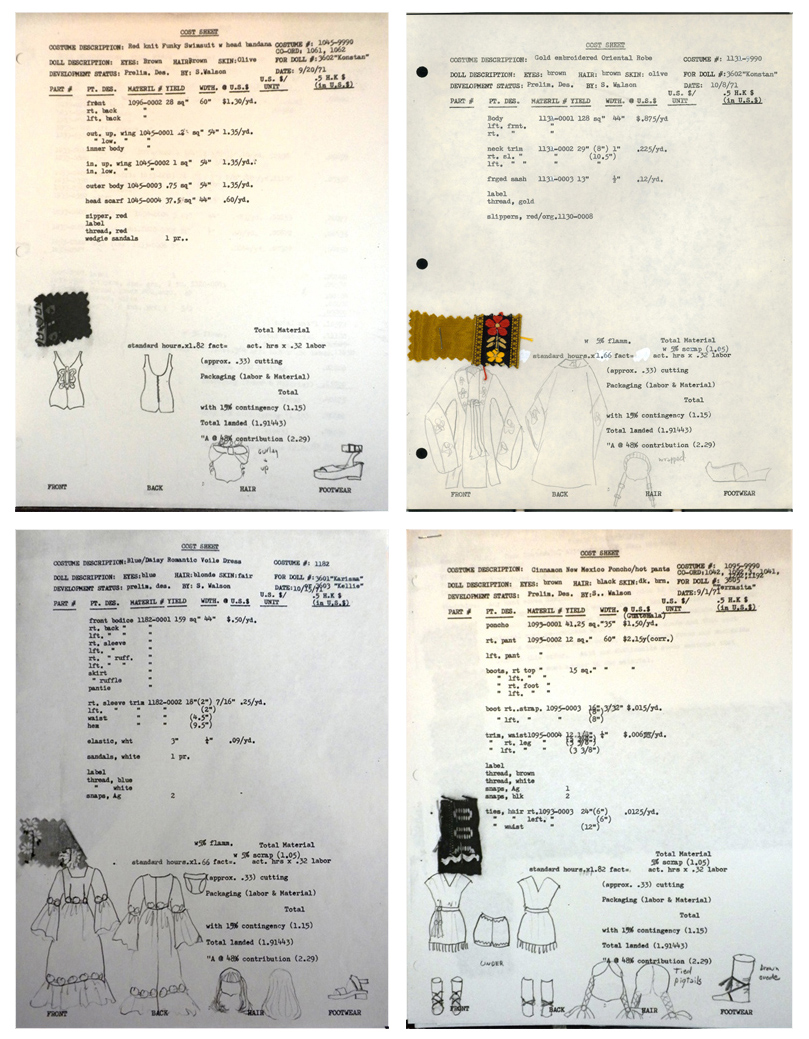 COST SHEET
COSTUME DESCRIPTION: Red knit Funky Swimsuit w head bandana COSTUME #: 1045-9990
CO-ORD: 1061, 1062
DOLL DESCRIPTION: EYES: Brown HAIR: Brown SKIN: Olive FOR DOLL #: 3602"Konstan"
DEVELOPMENT STATUS: Prelim. Des. BY: S.Walson DATE: 9/20/71
PART # PT. DES. MATERIL # YIELD WDTH. @ U.S.$ U.S. $/ UNIT .5 H.K $ (in U.S.$)
front 1096-0002 28 sq" 60" $1.30/yd.
rt. back "
lft. back "
out. up. wing 1045-0001 sq" 54" 1.35/yd.
" low. " "
inner body "
in. up. wing 1045-0002 1 sq" 54" 1.35/yd.
in. low. " "
outer body 1045-0003 .75 sq" 54" 1.35/yd.
head scarf 1045-0004 37.5 sq" 44" .60/yd.
zipper, red
label
thread, red
wedgie sandals 1 pr..
Total Material
standard hours.x1.82 fact= act. hrs x .32 labor
(approx. .33) cutting
Packaging (labor & Material)
Total
with 15% contingency (1.15)
Total landed (1.91443)
"A @ 48% contribution (2.29)
curley
up
FRONT BACK HAIR FOOTWEAR
COST SHEET
COSTUME DESCRIPTION: Gold embroidered Oriental Robe COSTUME #: 1131-9990
DOLL DESCRIPTION: EYES: brown HAIR: brown SKIN: olive FOR DOLL #:3602"Konstan"
DEVELOPMENT STATUS: Prelim. Des. BY: S. Walson DATE: 10/8/71
PART # PT. DES. MATERIL # YIELD WDTH. @ U.S.$ U.S. $/ UNIT .5 H.K $ (in U.S.$)
Body 1131-0001 128 sq" 44" $.875/yd
lft. frnt. "
rt. " "
neck trim 1131-0002 29" (8") 1" .225/yd.
rt. sl. " " (10.5")
lft. " " "
frged sash 1131-0003 13" ½" .12/yd.
label
thread, gold
slippers, red/org.1130-0008
w 5% flamm. Total Material
w 5% scrap (1.05)
standard hours.x1.66 fact= act. hrs x .32 labor
(approx. .33) cutting
Packaging (labor & Material)
Total
with 15% contingency (1.15)
Total landed (1.91443)
"A @ 48% contribution (2.29)
wrapped
FRONT BACK HAIR FOOTWEAR
COST SHEET
COSTUME DESCRIPTION: Blue/Daisy Romantic Voile Dress COSTUME #: 1182
DOLL DESCRIPTION: EYES:blue HAIR:blonde SKIN:fair FOR DOLL #:3601"Karisma"
3603 "Kellie"
DEVELOPMENT STATUS: prelim. des. BY: S. Walson DATE:10/15/71
PART # PT. DES. MATERIL # YIELD WDTH. @ U.S.$ U.S. $/ UNIT .5 H.K $ (in U.S.$)
front bodice 1182-0001 159 sq" 44" $.50/yd.
rt. back " "
lft. " " "
rt. sleeve "
lft. " "
rt. " ruff. "
lft. " " "
skirt "
" ruffle "
pantie "
rt. sleeve trim 1182-0002 18"(2") 7/16" .25/yd.
lft. " " " (2")
waist " " (4.5")
hem " " (9.5")
elastic, wht 3" ¼" .09/yd.
sandals, white 1 pr.
label
thread, blue
" white
snaps, Ag 2
w5% flamm. Total Material
w 5% scrap (1.05)
standard hours.x1.66 fact=. act. hrs x .32 labor
(approx. .33) cutting
Packaging (labor & Material)
Total
with 15% contingency (1.15)
Total landed (1.91443)
"A @ 48% contribution (2.29)
FRONT BACK HAIR FOOTWEAR
COST SHEET
COSTUME DESCRIPTION: Cinnamon New Mexico Poncho/hot pants COSTUME #: 1095-9990
DOLL DESCRIPTION: EYES: brown HAIR: black SKIN:dk. brn. FOR DOLL #: 3605
DEVELOPMENT STATUS: Prelim. Des. BY:S.. Walson DATE:9/1/71
PART # PT. DES. MATERIL # YIELD WDTH. @ U.S.$ U.S. $/ UNIT .5 H.K $ (in U.S.$)
(Guatemala)
poncho 1093-0001 41.25 sq."35" $1.50/yd.
rt. pant 1095-0002 12 sq." 60" $2.15y(corr.)
lft. pant "
boots, rt top " 15 sq." " "
" lft. " "
" rt. foot "
" lft. " "
boot rt..strap. 1095-0003 16" 3/32" $.015/yd.
(8")
" lft. " " (8")
trim, waist1095-0004 12 1/8" ¼"
" rt. leg " (3 3/8")
" lft. " " (3 3/8")
label
thread, brown
thread, white
snaps, Ag 1
snaps, blk 2
ties, hair rt.1093-0003 24"(6") .0125/yd.
" " left. " (6")
" waist " (12")
Total Material
5% scrap (1.05)
standard hours.x1.82 fact= act. hrs x .32 labor
(approx. .33) cutting
Packaging (labor & Material)
Total
with 15% contingency (1.15)
Total landed (1.91443)
"A @ 48% contribution (2.29)
UNDER
Tied
pigtails
brown
suede
FRONT BACK HAIR FOOTWEAR